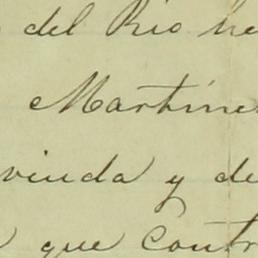 del Rio he
Martine
viuda y de
que contr